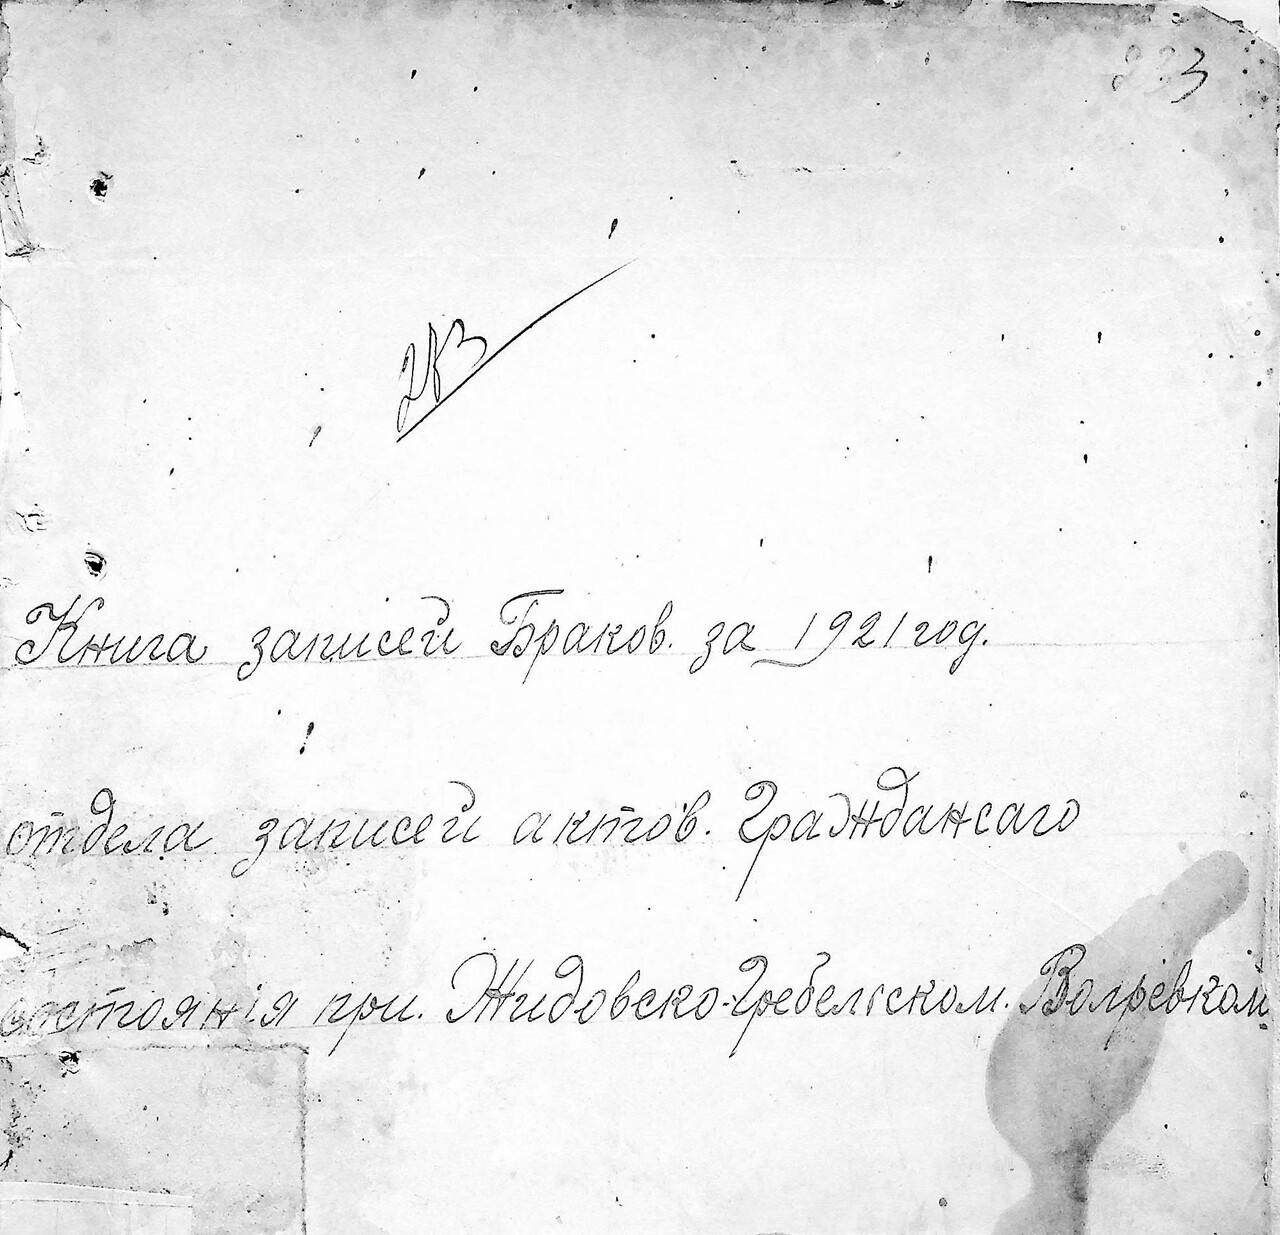 233
283
Книга записей Браков. за 1921 год.
отдела записей актов. Граждансаго
состоянія при. Жидовско-Гребельском. Волревком